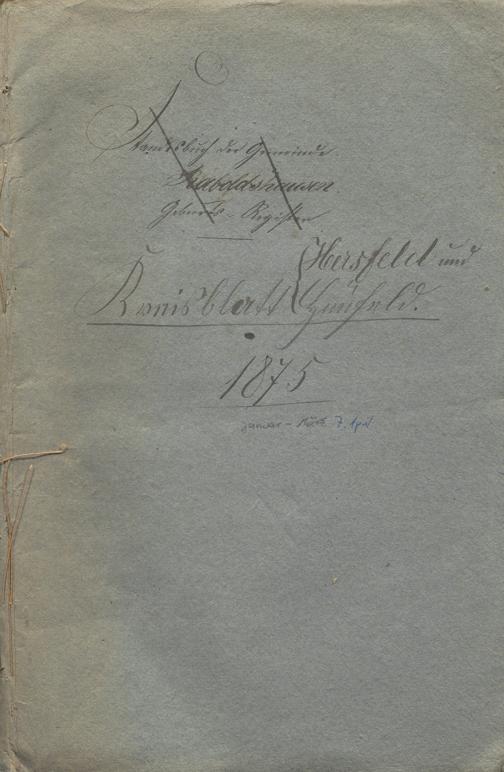 Standesbuch der Gemeinde
Kraboldshausen.
Geburts-Register
Hersfeld und
Kreisblatt Hünfeld.
1875
Januar - März 7. April